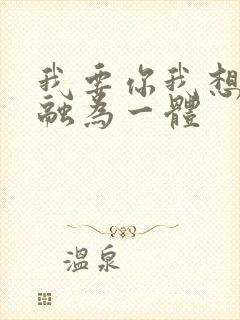 我要你我想
融為一體
溫泉